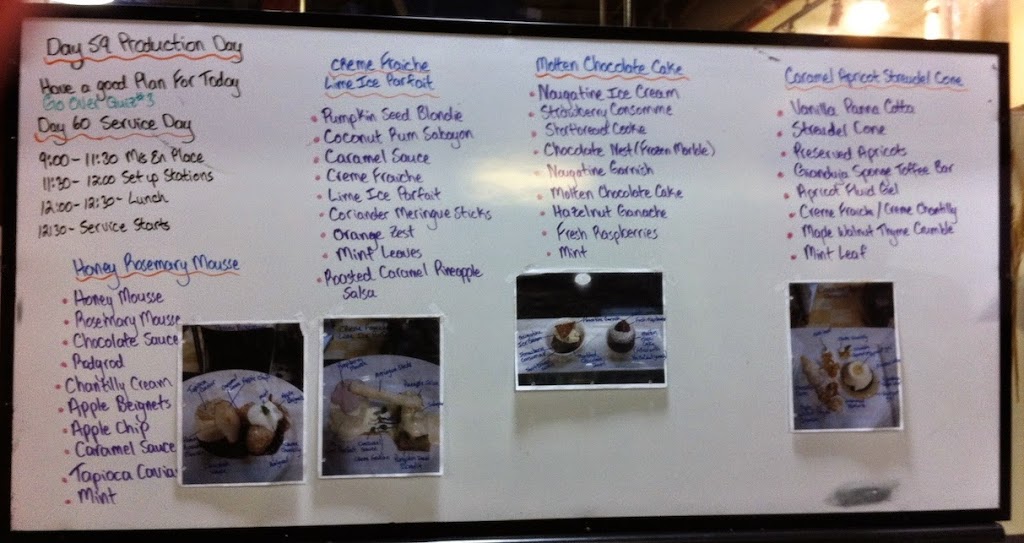 Day 59 Production Day
Have a good Plan For Today
Go Over Quiz #3
Day 60 Service Day
9:00-11:30 Mis En Place
11:30-12:00 Set up Stations
12:00-12:30- Lunch
12:30- Service Starts
Honey Rosemary Mousse
Honey Mousse
Rosemary Mousse
Chocolate Sauce
Rodgrod
Chantilly Cream
Apple Beignets
Apple Chip
Caramel Sauce
Tapioca Caviar
Mint
Creme Fraiche
Lime Ice Parfait
Pumpkin Seed Blondie
Coconut Rum Sabayon
Caramel Sauce
Creme Fraiche
Lime Ice Parfait
Coriander Meringue Sticks
Orange Zest
Mint Leaves
Roasted Caramel Pineapple
Salsa
Molten Chocolate Cake
Nougatine Ice Cream
Strawberry Consomme
Shortbread Cookie
Chocolate Nest (Frozen Marble)
Nougatine Garnish
Molten Chocolate Cake
Hazelnut Ganache
Fresh Raspberries
Mint
Caramel Apricot Streudel Cone
Vanilla Panna Cotta
Streudel Cone
Preserved Apricots
Gianduja Sponge Toffee Bar
Apricot Fluid Gel
Creme Fraiche / Creme Chantilly
Maple Walnut Thyme Crumble
Mint Leaf